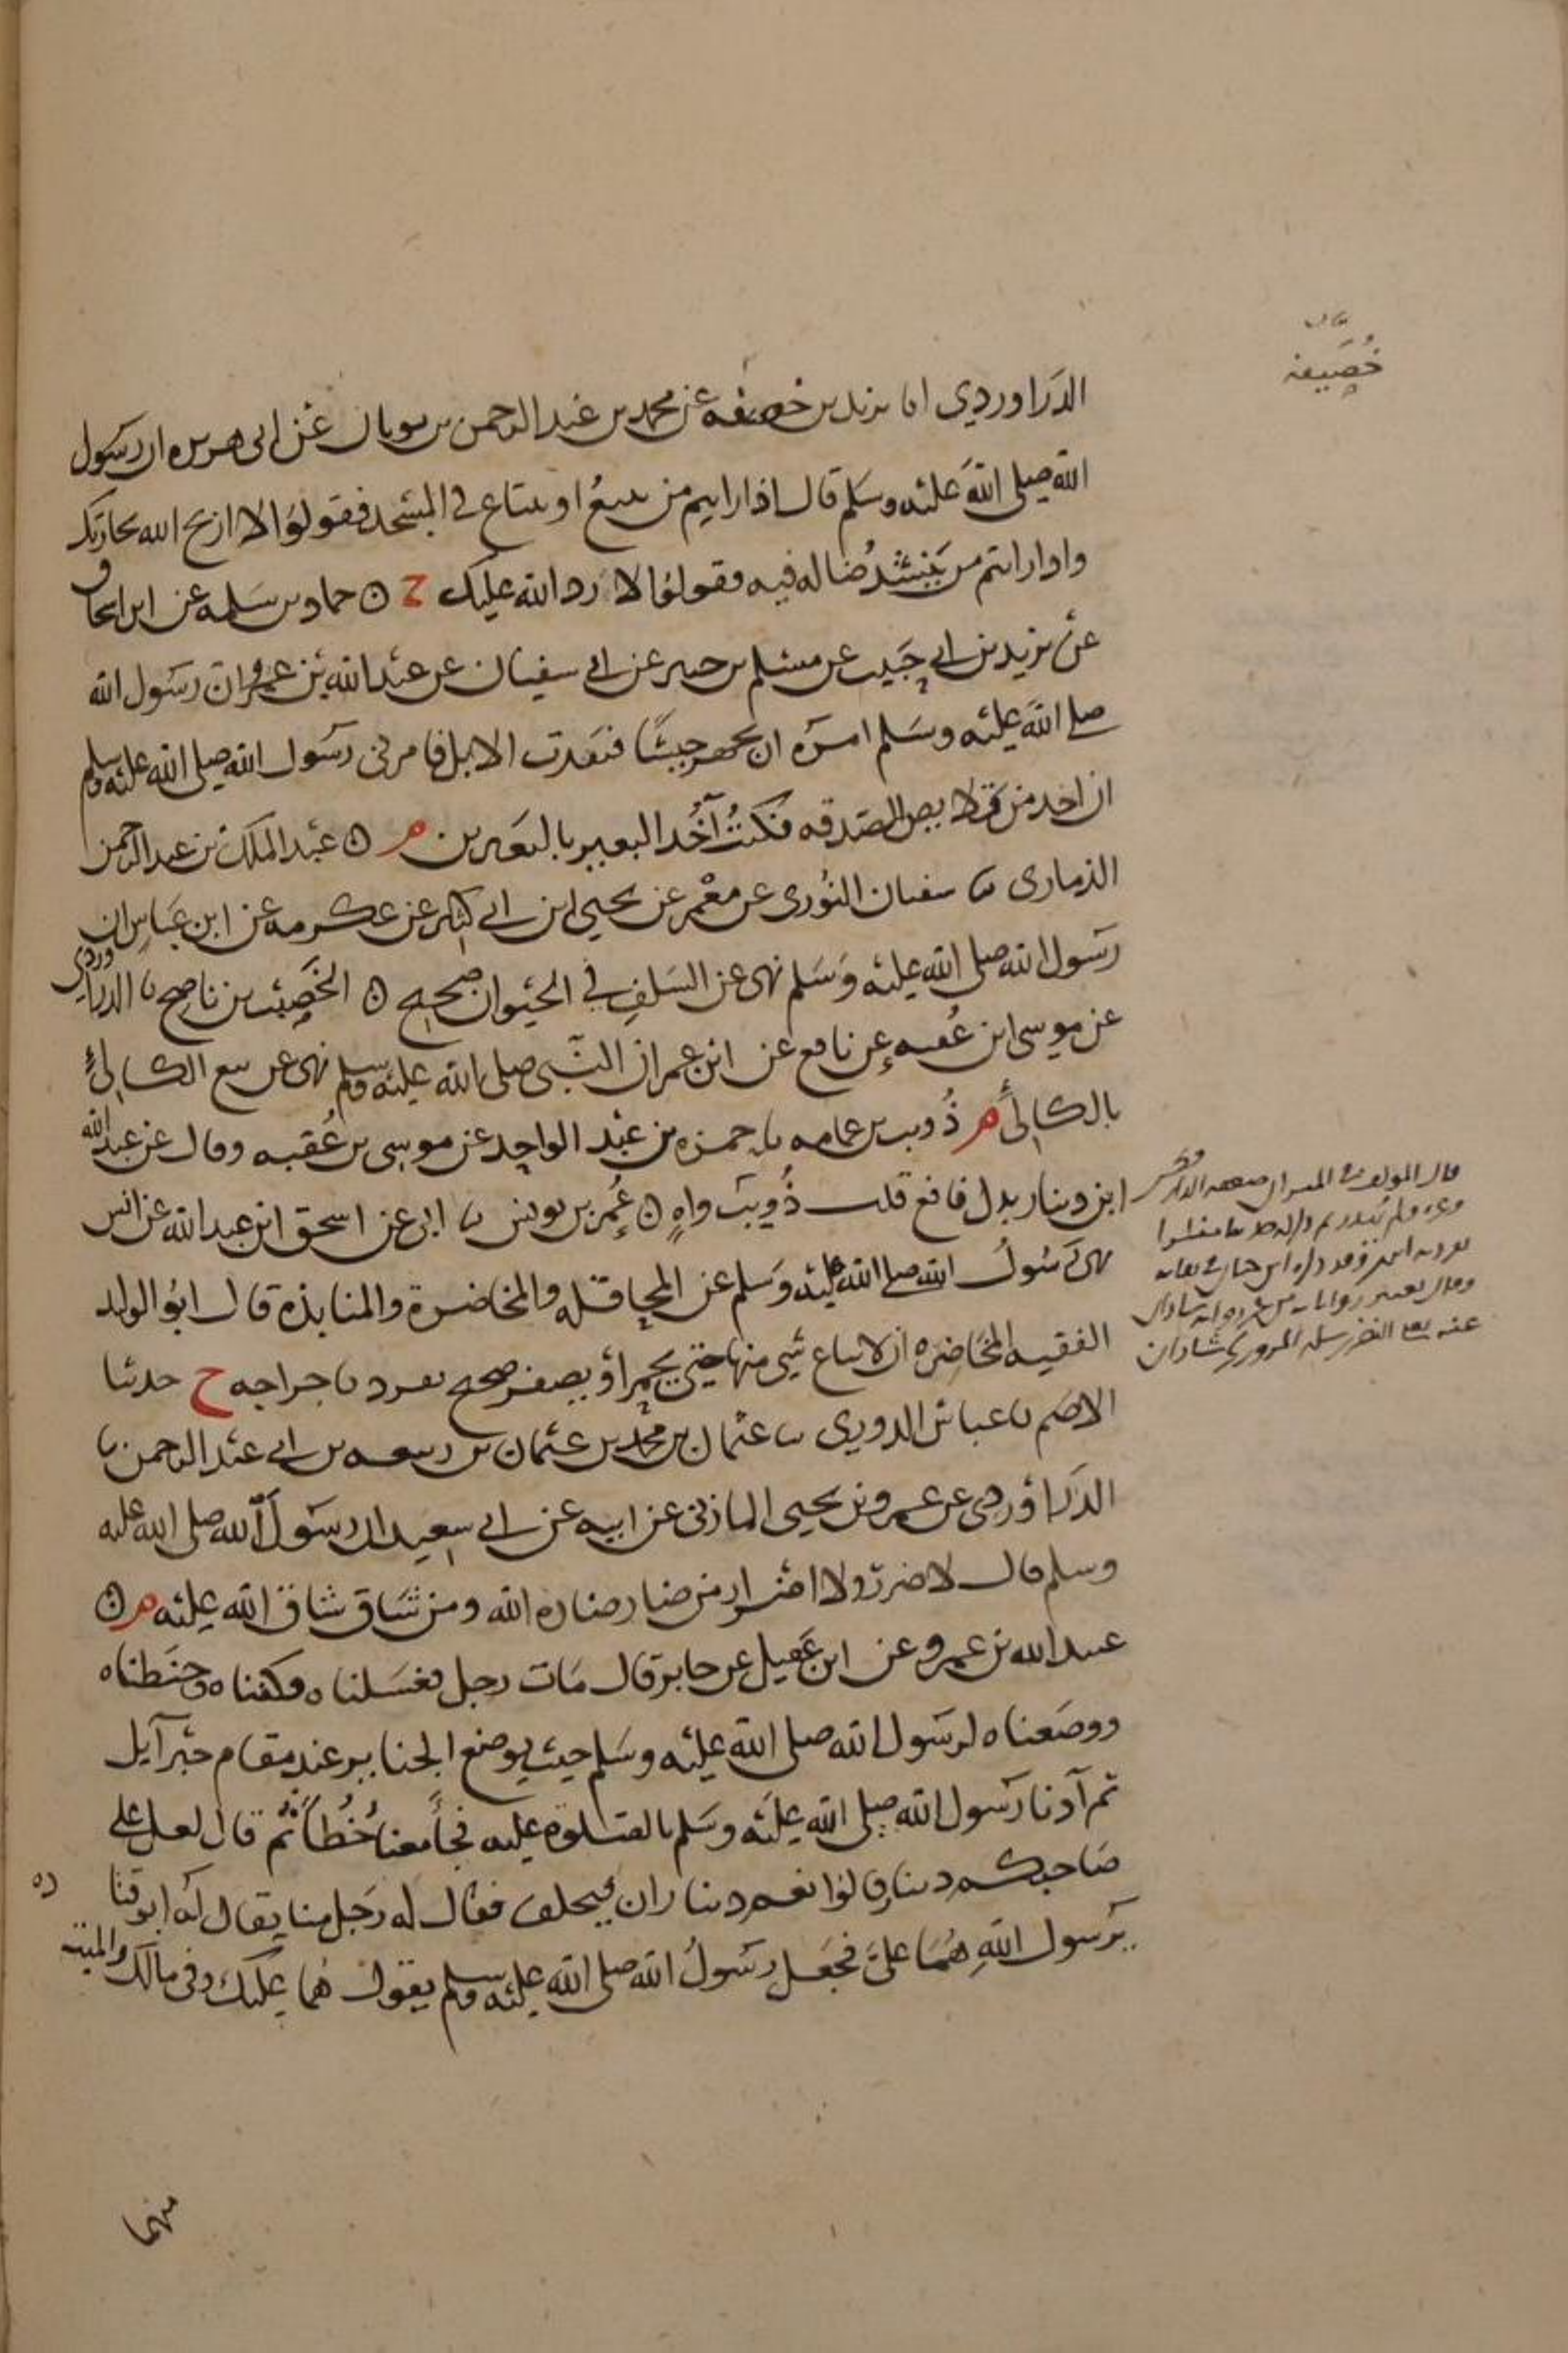 خصيفة
الدراوردي انا يزيد بن خصيفه عن محمد بن عبد الرحمن بن ثوبان عن ابى هريره ان رسول
الله صلى الله عليه وسلم قال اذا رايتم من يبيع او يبتاع في المسجد فقولوا لا اربح الله تجارتك
واذا رايتم من ينشد ضاله فيه فقولوا لا رد الله عليك م ه حماد بن سلمه عن ابن اسحاق
عن يزيد بن ابي حبيب عن مسلم بن جبير عن ابي سفيان عن عبد الله بن عمرو ان رسول الله
صلى الله عليه وسلم امره ان يجهز جيشا فنفدت الابل فامرنى رسول الله صلى الله عليه وسلم
ان اخذ من قلايص الصدقه فكنت آخذ البعير بالبعيرين م ه عبد الملك بن عبد الرحمن
الذمارى نا سفيان الثورى عن معمر عن يحيى ابن ابي كثير عن عكرمه عن ابن عباس ان
رسول الله صلى الله عليه وسلم نهى عن السلف في الحيوان صحيح ه الخصيب بن ناصح نا الدراوردي
عن موسى ابن عقبه عن نافع عن ابن عمر ان النبى صلى الله عليه وسلم نهى عن بيع الكالئ
بالكالئ م ذويب بن عمامه نا حمزه بن عبد الواحد عن موسى بن عقبه وقال عن عبد الله
ابن دينار بدل نافع قلت ذويب واه ه عمر بن يونس نا ابى عن اسحق ابن عبد الله عن انس
نهى رسول الله صلى الله عليه وسلم عن المحاقله والمخاضرة والمنابذة قال ابو الوليد
الفقيه المخاضره ان لا يباع شي منها حتى يحمر او يصفر صحيح تفرد باخراجه خ حدثنا
الاصم نا عباس الدوري نا عثمان بن محمد بن عثمان بن ربيعه بن ابي عبد الرحمن نا
الدراوردى عن عمرو بن يحيى المازنى عن ابيه عن ابي سعيد ان رسول الله صلى الله عليه
وسلم قال لا ضرر ولا اضرار من ضار ضاره الله ومن شاق شاق الله عليه م ه
عبيد الله بن عمرو عن ابن عقيل عن جابر قال مات رجل فغسلناه وكفناه وحنطناه
ووضعناه لرسول الله صلى الله عليه وسلم حيث يوضع الجنايز عند مقام جبرآيل
ثم آذنا رسول الله صلى الله عليه وسلم بالصلوة عليه فجا معنا خطا ثم قال لعل على
صاحبكم دينا قالوا نعم ديناران فتخلف فقال له رجل منا يقال له ابو قتا ده
يرسول الله هما علي فجعل رسول الله صلى الله عليه وسلم يقول هما عليك وفى مالك والميت
قال المولف في الميزان ضعفه الدارقطنى
منهما